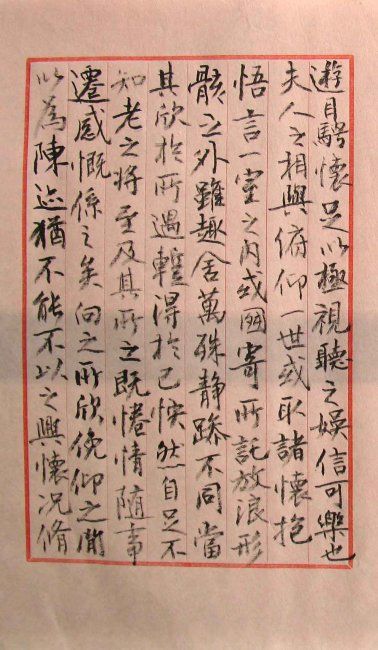 遊目騁懷足以極視聽之娛信可樂也
夫人之相與俯仰一世或取諸懷抱
悟言一室之內或因寄所託放浪形
骸之外雖趣舍萬殊靜躁不同當
其欣於所遇暫得於己怏然自足不
知老之將至及其所之既惓情隨事
遷感慨係之矣向之所欣俛仰之間
以為陳迹猶不能不以之興懷況脩